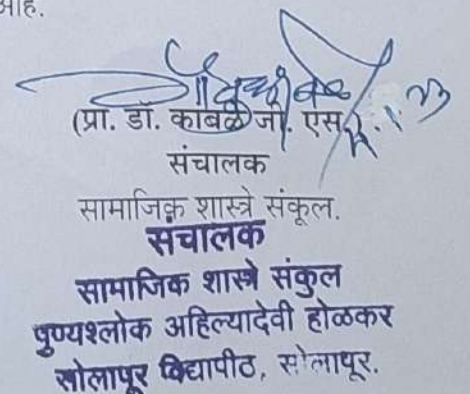 आहे.
(प्रा. डॉ. कांबळे जी. एस.)
संचालक
सामाजिक शास्त्रे संकूल.
संचालक
सामाजिक शास्त्रे संकुल
पुण्यश्लोक अहिल्यादेवी होळकर
सोलापूर विद्यापीठ, सोलापूर.